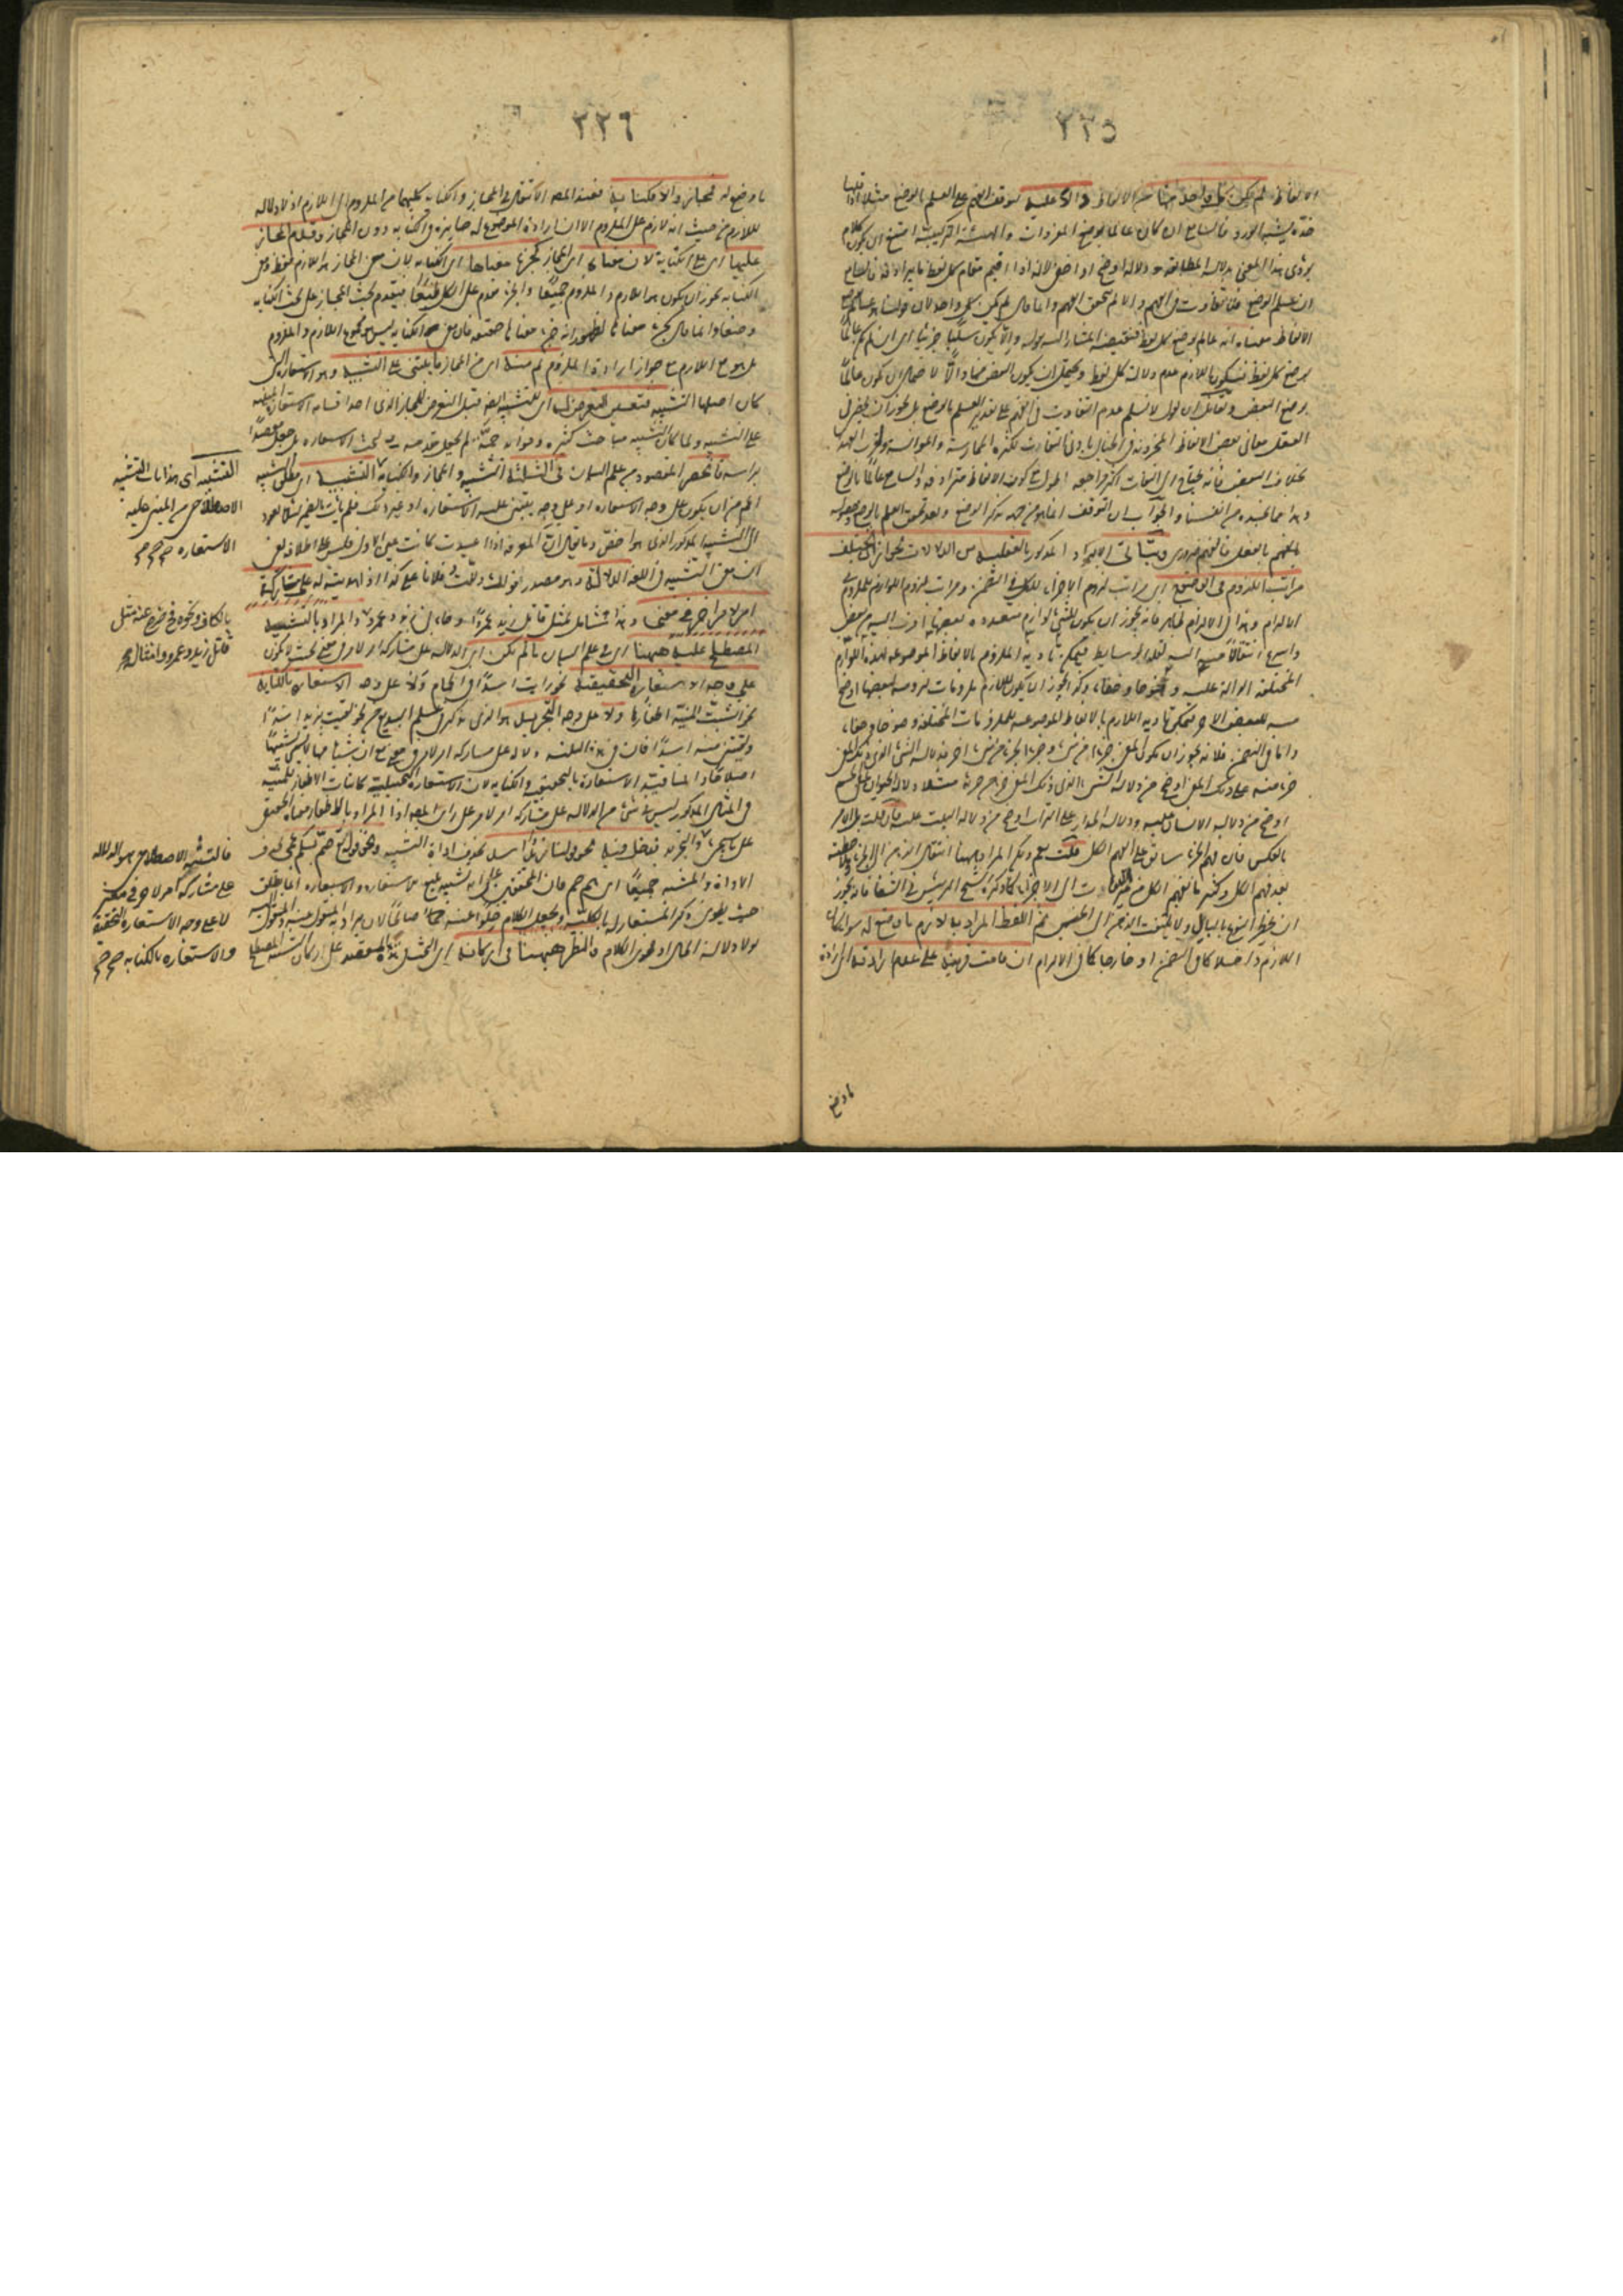 ٢٢٥
الالفاظ لم يكن كل واحد منها من الالفاظ دالا عليه لتوقف الفهم على العلم بالوضع مثلا اذا قلنا
خده يشبه الورد فالسامع ان كان عالما بوضع المفردات والهيئة التركيبية امتنع ان يكون كلام
يؤدى هذا المعنى بدلالة المطابقة دلالة اوضح او اخفى لانه اذا اقيم مقام كل لفظ ما يرادفه فالسامع
ان علم الوضع فلا تفاوت فى الفهم والا لم يتحقق الفهم وانما قال لم يكن كل واحد لان قولنا هو عالم بوضع
الالفاظ معناه انه عالم بوضع كل لفظ فنقيضه المشار اليه بقوله والا يكون سلبا جزئيا اى ان لم يكن عالما
بوضع كل لفظ فيكون اللازم عدم دلالة كل لفظ ويحتمل ان يكون البعض منها دالا لاحتمال ان يكون عالما
بوضع البعض ولقائل ان يقول لا نسلم عدم التفاوت فى الفهم على تقدير العلم بالوضع بل يجوز ان يحضر فى
العقل معانى بعض الالفاظ المخزونة فى الخيال بادنى التفات لكثرة الممارسة والموانسة وقرب العهد
بخلاف البعض فانه يحتاج الى التفات اكثر ومراجعة اطول مع كون الالفاظ مترادفة والسامع عالما بالوضع
وهذا مما نجده من انفسنا والجواب ان التوقف انما هو من جهة تذكر الوضع وبعد تحقق العلم بالوضع وحصوله
بالفعل فالفهم ضرورى ويتأتى الايراد المذكور بالعقلية من الدلالات لجواز ان يختلف
مراتب اللزوم فى الوضوح اى مراتب لزوم الاجزاء للكل فى التضمن ومراتب لزوم اللوازم للملزوم فى
الالتزام وهذا فى الالتزام ظاهر فانه يجوز ان يكون للشئ لوازم متعددة بعضها اقرب اليه من بعض
واسرع انتقالا منه اليه لقلة الوسايط فيمكن تادية الملزوم بالالفاظ الموضوعة لهذه اللوازم
المختلفة الدلالة عليه وضوحا وخفاء وكذا يجوز ان يكون للازم ملزومات لزومه لبعضها اوضح
منه للبعض الاخر فيمكن تادية اللازم بالالفاظ الموضوعة للملزومات المختلفة وضوحا وخفاء
واما فى التضمن فلانه يجوز ان يكون المعنى جزءا من شئ وجزءا لجزء من شئ اخر فدلالة الشئ الذى ذلك المعنى
جزء منه على ذلك المعنى اوضح من دلالة الشئ الذى ذلك المعنى جزء من جزئه مثلا دلالة الحيوان على الجسم
اوضح من دلالة الانسان عليه ودلالة الجدار على التراب اوضح من دلالة البيت عليه فان قلت بل الامر
بالعكس فان فهم الجزء سابق على فهم الكل قلت نعم ولكن المراد ههنا انتقال الذهن الى الجزء وملاحظته
بعد فهم الكل وكثيرا ما يفهم الكل من غير التفات الى الاجزاء كما ذكره الشيخ الرئيس فى الشفا انه يجوز
ان يخطر النوع بالبال ولا يلتفت الذهن الى الجنس ثم اللفظ المراد به لازم ما وضع له سواء كان
اللازم داخلا كما فى التضمن او خارجا كما فى الالتزام ان قامت قرينة على عدم ارادته اى ارادة
ما وضع
٢٢٦
ما وضع له فمجاز والا فكناية فعند المص الانتقال فى المجاز والكناية كليهما من الملزوم الى اللازم اذ لا دلالة
للازم من حيث انه لازم على الملزوم الا ان ارادة الموضوع له جايزة فى الكناية دون المجاز وقدم المجاز
عليها اى على الكناية لان معناه اى المجاز كجزء معناها اى الكناية لان معنى المجاز هو اللازم فقط ومعنى
الكناية يجوز ان يكون هو اللازم والملزوم جميعا والجزء مقدم على الكل طبعا فيقدم بحث المجاز على بحث الكناية
وضعا وانما قال كجزء معناها لظهور انه ليس جزء معناها حقيقة فان معنى الكناية ليس هو مجموع اللازم والملزوم
بل هو اللازم مع جواز ارادة الملزوم ثم منه اى من المجاز ما يبتنى على التشبيه وهو الاستعارة التى
كان اصلها التشبيه فتعين التعرض له اى للتشبيه ايضا قبل التعرض للمجاز الذى احد اقسامه الاستعارة المبنية
على التشبيه ولما كان فى التشبيه مباحث كثيرة وفوايد جمة لم يجعل مقدمة لبحث الاستعارة بل جعل مقصدا
براسه فانحصر المقصود من علم البيان فى الثلثة التشبيه والمجاز والكناية التشبيه اى مطلق التشبيه
اعم من ان يكون على وجه الاستعارة او على وجه يبتنى عليه الاستعارة او غير ذلك فلم يأت بالضمير لئلا يعود
الى التشبيه المذكور الذى هو اخص وما يقال ان المعرفة اذا اعيدت كانت عين الاول فليس على اطلاقه يعنى
ان معنى التشبيه فى اللغة الدلالة هو مصدر قولك دللت فلانا على كذا اذا هديته له على مشاركة
امر لامر اخر فى معنى وهذا شامل لمثل قاتل زيد عمرا وجاءنى زيد وعمرو والمراد بالتشبيه
المصطلح عليه ههنا اى فى علم البيان ما لم تكن اى الدلالة على مشاركة امر لامر فى معنى بحيث لا تكون
على وجه الاستعارة التحقيقية نحو رايت اسدا فى الحمام ولا على وجه الاستعارة بالكناية
نحو انشبت المنية اظفارها ولا على وجه التجريد الذى يذكر فى علم البديع من نحو لقيت بزيد اسدا
ولقينى منه اسد فان فى هذه الثلثة دلالة على مشاركة امر لامر فى معنى مع ان شيئا منها لا يسمى تشبيها
اصطلاحا وانما قيد الاستعارة بالتحقيقية والكناية لان الاستعارة التخييلية كاثبات الاظفار للمنية
فى المثال المذكور ليس فى شئ من الدلالة على مشاركة امر لامر على راى المص اذ المراد بالاظفار معناها الحقيقى
على ما سيجئ فدخل فيه نحو قولنا زيد اسد بحذف اداة التشبيه ونحو قوله تع صم بكم عمى بحذف
الاداة والمشبه جميعا اى هم صم فان المحققين على انه تشبيه بليغ لا استعارة والاستعارة انما تطلق
حيث يطوى ذكر المستعار له بالكلية ويجعل الكلام خلوا عنه صالحا لان يراد به المنقول عنه والمنقول اليه
لولا دلالة الحال او فحوى الكلام والنظر ههنا فى اركانه اى البحث فى هذا المقصد عن اركان التشبيه المصطلح
التشبيه اى هذا باب التشبيه
الاصطلاحى المبنى عليه
الاستعارة صح صح
بالكاف ونحوه فخرج عنه مثل
قاتل زيد وعمرو وامثاله صح
فالتشبيه الاصطلاحى هو الدلالة
على مشاركة امر لامر فى معنى
لا على وجه الاستعارة التحقيقية
والاستعارة بالكناية صح صح